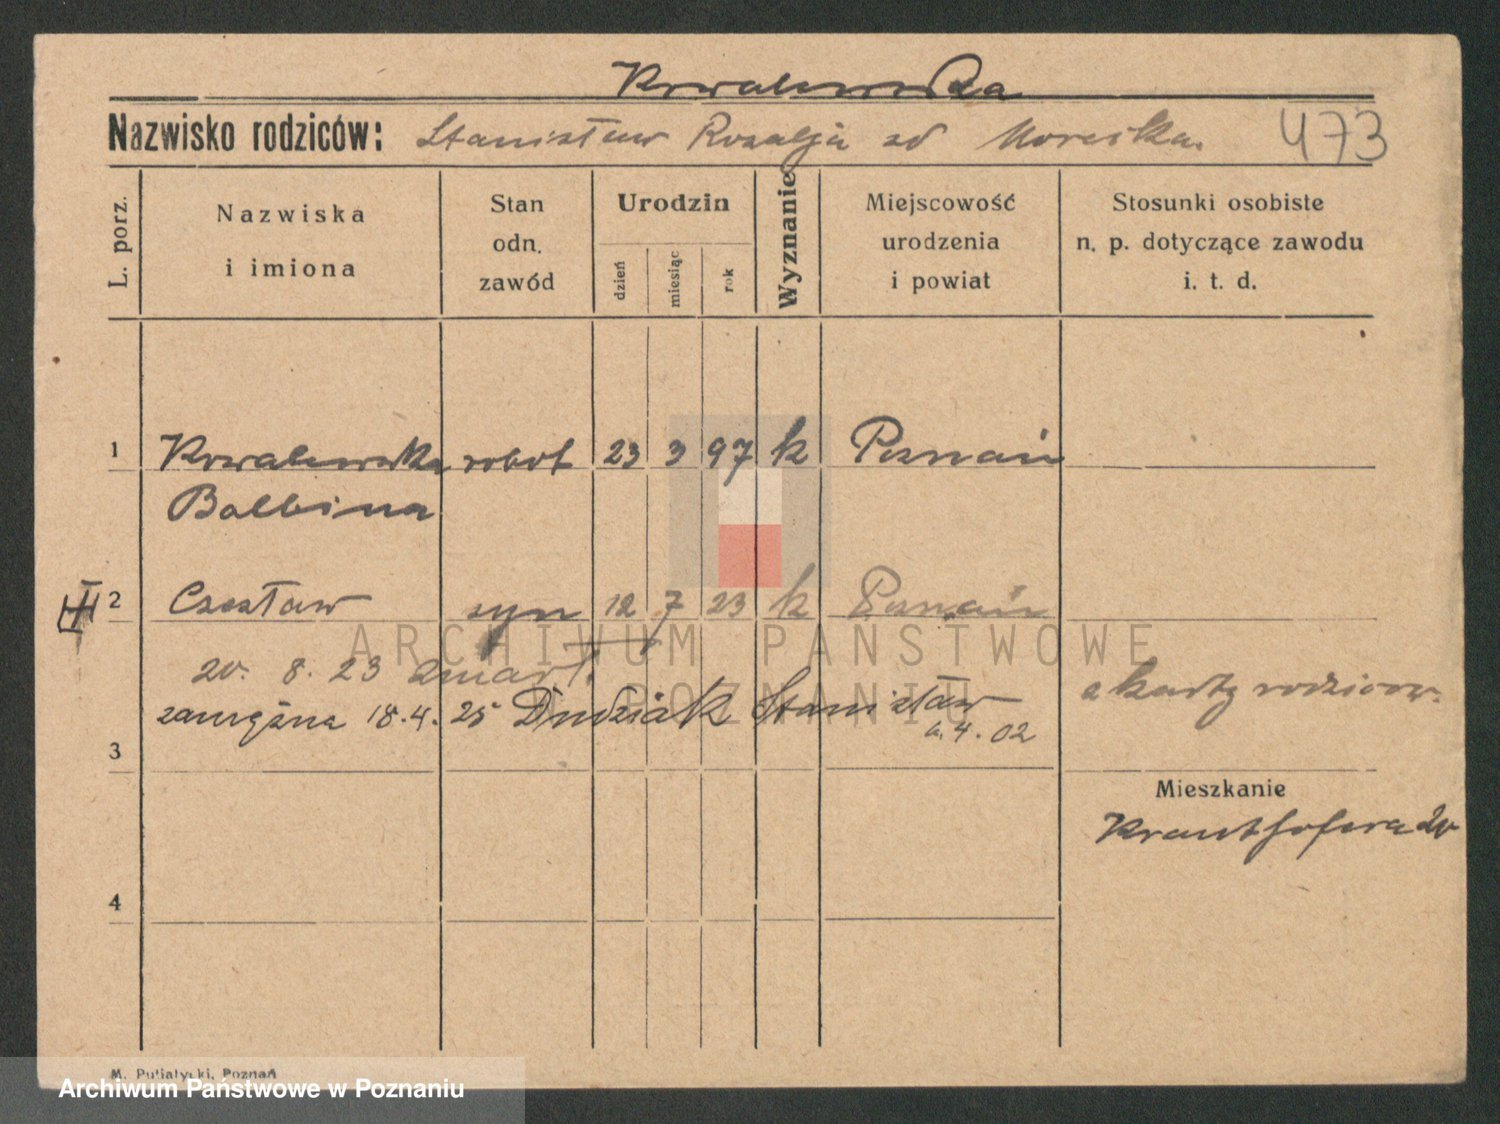 Kowalewska
Nazwisko rodziców: Stanisław Rozalja zd 473
L. porz.
Nazwiska i imiona
Stan odn. zawód
Urodzin
dzień
miesiąc
rok
Wyznanie
Miejscowość urodzenia i powiat
Stosunki osobiste n. p. dotyczące zawodu i. t. d.
1 Kowalewska robot 23 3 97 k Poznań
Balbina
2 Czesław syn 12 7 23 k Poznań
20. 8. 23 zmarł.
z karty rodziców.
zamężna 18.4.25 Dudziak Stanisław
4. 02
3
Mieszkanie
Krauthofera
4
M. Putiatycki, Poznań
ARCHIWUM PAŃSTWOWE
W POZNANIU
Archiwum Państwowe w Poznaniu